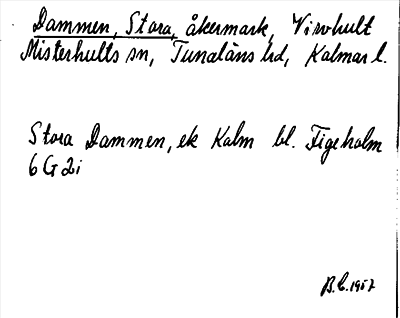 Dammen, Stora, åkermark, Virvhult
Misterhults sn, Tunaläns hd, Kalmar l.
Stora Dammen, ek Kalm bl. Figeholm
6 G 2i
B.C. 1957